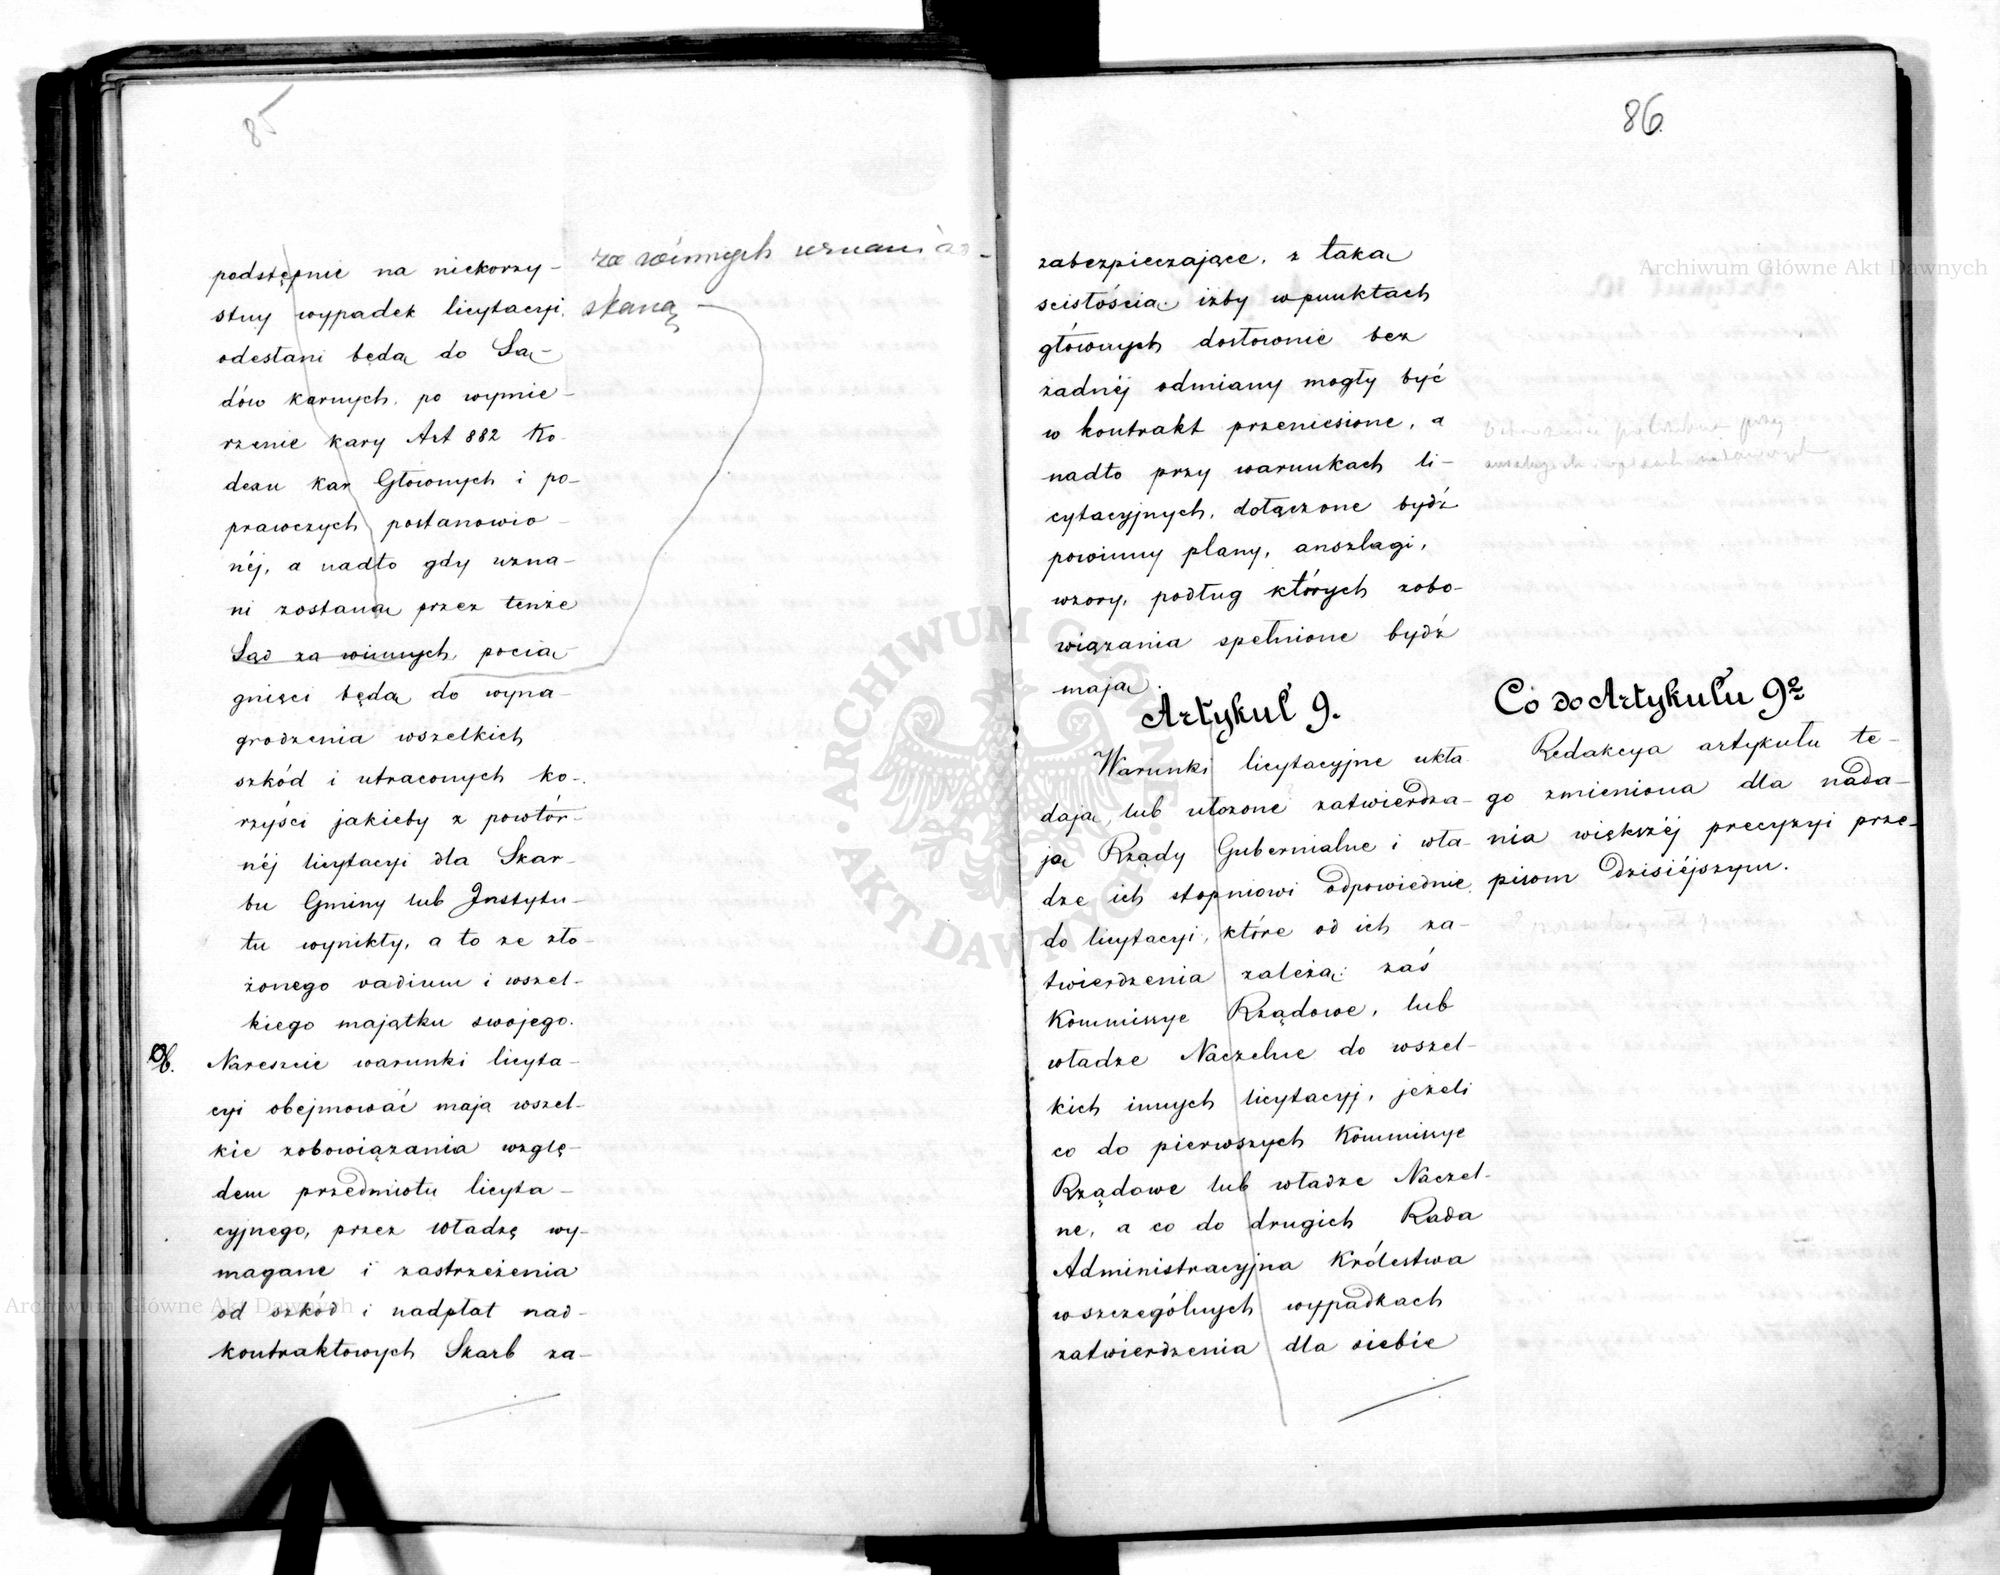 85
podstępnie na niekorzy-
stny wypadek licytacyi,
odesłani będą do Są-
dów karnych, po wymie-
rzenie kary Art 882 Ko-
dexu kar Głównych i po-
prawczych postanowio-
néj, a nadto gdy uzna-
ni zostaną przez tenże
Sąd za winnych, pocią-
gnięci będą do wyna-
grodzenia wszelkich
szkód i utraconych ko-
rzyści jakieby z powtór-
néj licytacyi dla Skar-
bu Gminy lub Instytu-
tu wynikły, a to ze zło-
żonego vadium i wszel-
kiego majątku swojego.
Nareszcie warunki licyta-
cyi obejmować mają wszel-
kie zobowiązania wzglę-
dem przedmiotu licyta-
cyjnego, przez Władzę wy-
magane i zastrzeżenia
od szkód i nadpłat nad-
kontraktowych Skarb za-
za winnych uznani zo-
staną
86.
zabezpieczające, z taką
scisłością, iżby w punktach
głównych dosłownie bez
żadnéj odmiany mogły być
w kontrakt przeniesione, a
nadto przy warunkach li-
cytacyjnych, dołączone bydź
powinny plany, anszlagi,
wzory, podług których zobo-
wiązania spełnione bydź
mają.
Artykuł 9.
Warunki licytacyjne ukła-
dają, lub ułożone zatwierdza-
ją Rządy Gubernialne i wła-
dze ich stopniowi odpowiednie,
do licytacyi, które od ich za-
twierdzenia zależą: zaś
Kommissye Rządowe, lub
władze Naczelne do wszel-
kich innych licytacyj, jeżeli
co do pierwszych Kommissye
Rządowe lub władze Naczel-
ne, a co do drugich Rada
Administracyjna Królestwa
w szczególnych wypadkach
zatwierdzenia dla siebie
Co do Artykułu 9º
Redakcya artykułu te-
go zmieniona dla nada-
nia większéj precyzyi prze-
pisom dzisiéjszym.
Archiwum Główne Akt Dawnych
Archiwum Główne Akt Dawnych
ARCHIWUM GŁÓWNE AKT DAWNYCH